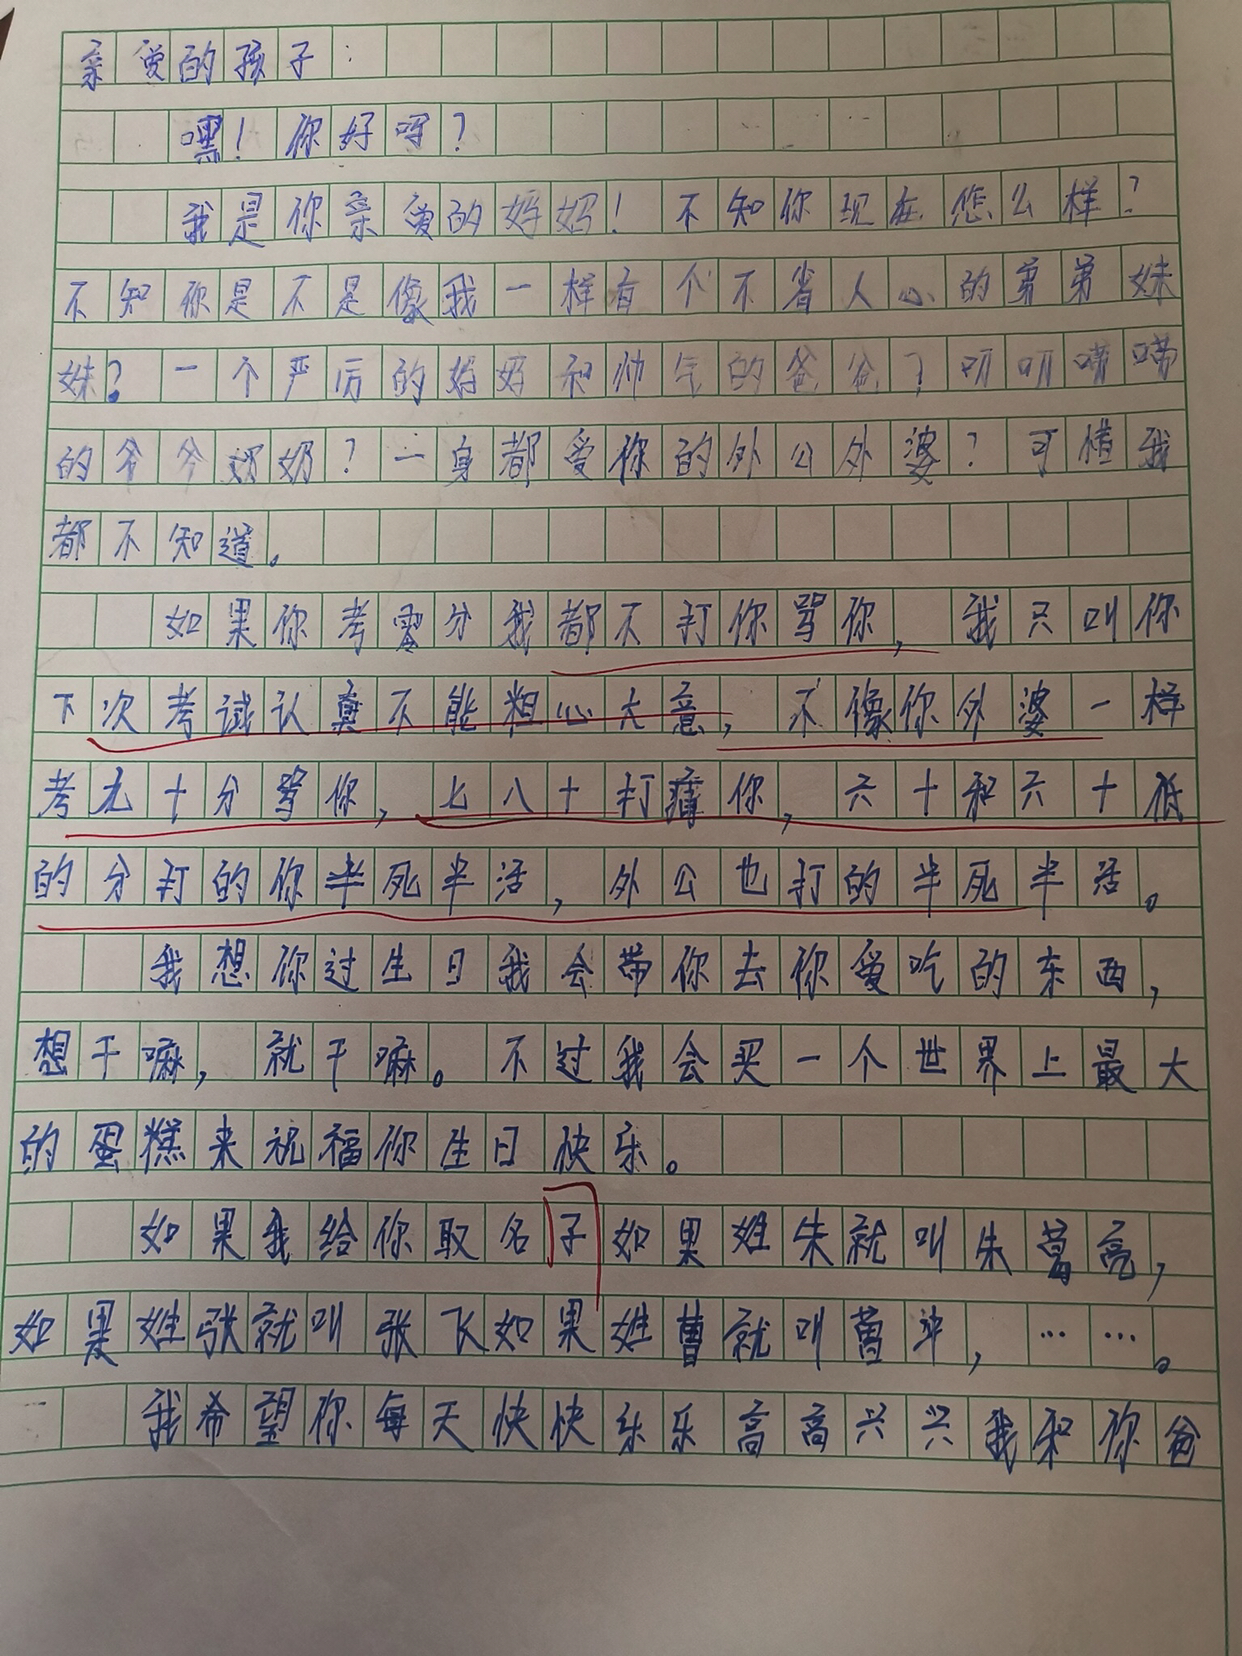 亲爱的孩子：
嘿！你好吗？
我是你亲爱的妈妈！不知你现在怎么样？
不知你是不是像我一样有个不省人心的弟弟妹
妹？一个严厉的妈妈和帅气的爸爸？叨叨唠唠
的爷爷奶奶？一身都爱你的外公外婆？可惜我
都不知道。
如果你考零分我都不打你骂你，我只叫你
下次考试认真不能粗心大意，不像你外婆一样
考九十分骂你，七八十打痛你，六十和六十低
的分打的你半死半活，外公也打的半死半活。
我想你过生日我会带你去你爱吃的东西，
想干嘛，就干嘛。不过我会买一个世界上最大
的蛋糕来祝福你生日快乐。
如果我给你取名子如果姓朱就叫朱葛亮，
如果姓张就叫张飞如果姓曹就叫
……。
我希望你每天快快乐乐高高兴兴我和你爸